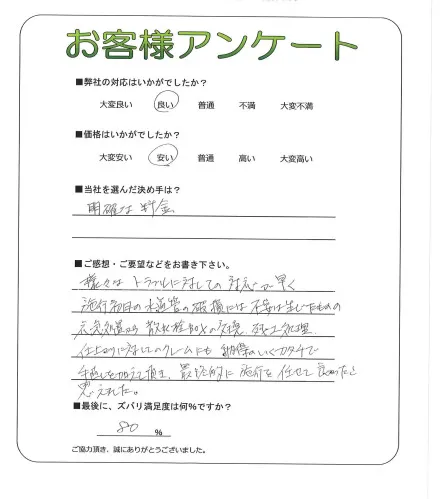 お客様アンケート
■弊社の対応はいかがでしたか?
大変良い 良い 普通 不満 大変不満
■価格はいかがでしたか?
大変安い 安い 普通 高い 大変高い
■当社を選んだ決め手は?
明確な料金
■ご感想・ご要望などをお書き下さい。
様々なトラブルに対しての対応が早く
施行初日の水道管の破損には不安は生じたものの
応急処置から散水栓BOXの交換、残土処理
仕上がりに対してのクレームにも納得のいくカタチで
手直しを加えて頂き、最終的に施行を任せて良かったと
思えました。
■最後に、ズバリ満足度は何%ですか?
80 %
ご協力頂き、誠にありがとうございました。